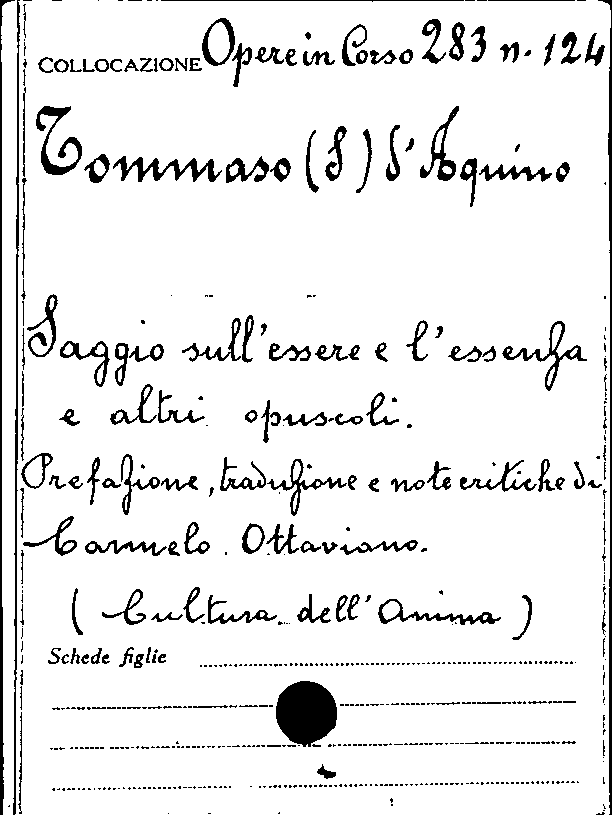 COLLOCAZIONE Opere in Corso 283 n. 124
Tommaso (S) d'Aquino
Saggio sull'essere e l'essenza
e altri opuscoli.
Prefazione, traduzione e note critiche di
Carmelo Ottaviano.
(Cultura dell'Anima)
Schede figlie